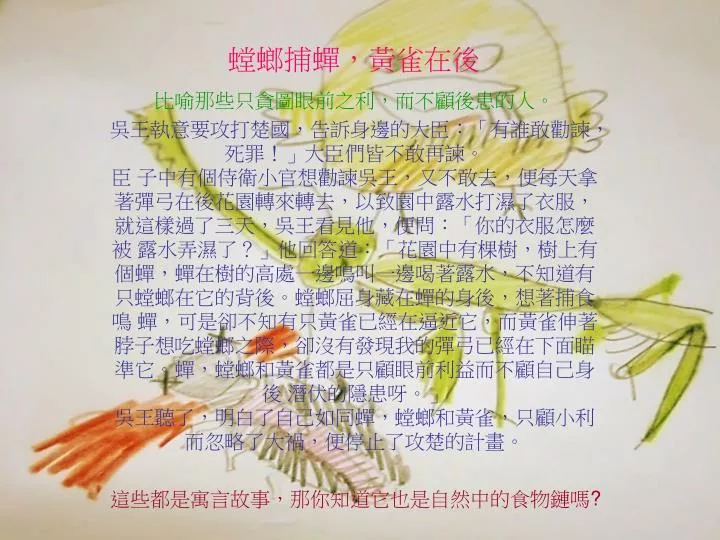 螳螂捕蟬，黃雀在後
比喻那些只貪圖眼前之利，而不顧後患的人。
吳王執意要攻打楚國，告訴身邊的大臣：「有誰敢勸諫，
死罪！」大臣們皆不敢再諫。
臣 子中有個侍衛小官想勸諫吳王，又不敢去，便每天拿
著彈弓在後花園轉來轉去，以致園中露水打濕了衣服，
就這樣過了三天，吳王看見他，便問：「你的衣服怎麼
被 露水弄濕了？」他回答道：「花園中有棵樹，樹上有
個蟬，蟬在樹的高處一邊鳴叫一邊喝著露水，不知道有
只螳螂在它的背後。螳螂屈身藏在蟬的身後，想著捕食
鳴 蟬，可是卻不知有只黃雀已經在逼近它，而黃雀伸著
脖子想吃螳螂之際，卻沒有發現我的彈弓已經在下面瞄
準它。蟬，螳螂和黃雀都是只顧眼前利益而不顧自己身
後 潛伏的隱患呀。
吳王聽了，明白了自己如同蟬，螳螂和黃雀，只顧小利
而忽略了大禍，便停止了攻楚的計畫。
這些都是寓言故事，那你知道它也是自然中的食物鏈嗎?